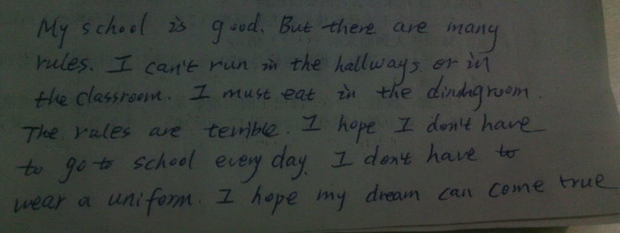 My school is good. But there are many
rules. I can't run in the hallways or in
the classroom. I must eat in the diningroom.
The rules are terrible. I hope I don't have
to go to school every day. I don't have to
wear a uniform. I hope my dream can come true